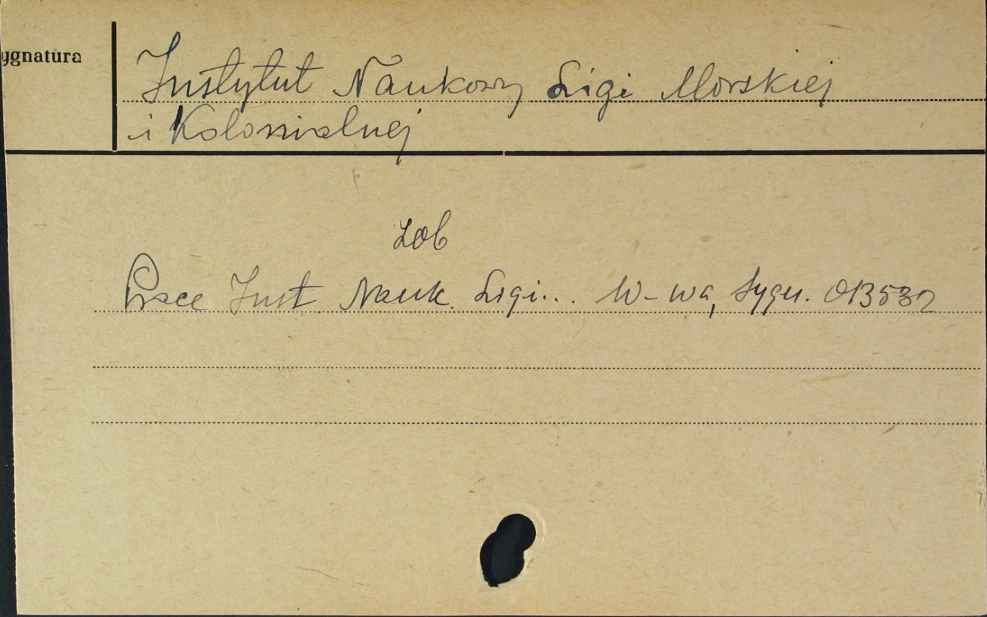 ygnatura
Instytut Naukowy Ligi Morskiej
i Kolonialnej
zob
Prace Inst. Nauk. Ligi... W-wa, Sygn. OB532